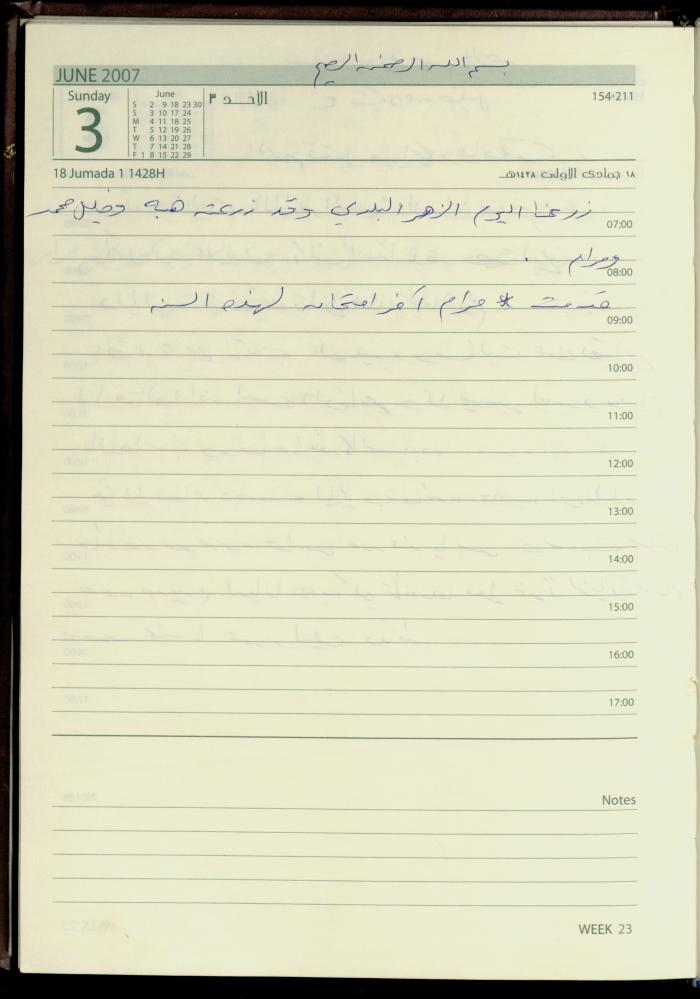 بسم الله الرحمن الرحيم
JUNE 2007
Sunday
3
June
S 2 9 16 23 30
S 3 10 17 24
M 4 11 18 25
T 5 12 19 26
W 6 13 20 27
T 7 14 21 28
F 1 8 15 22 29
الأحد ٣
154-211
18 Jumada 1 1428H
١٨ جمادى الاولى ١٤٢٨هـ
زرعنا اليوم الزهر البلدي وقد زرعته هبه وخليل محمد
07:00
ومرام .
08:00
قدمت * مرام آخر امتحان لهذه السنه
09:00
10:00
11:00
12:00
13:00
14:00
15:00
16:00
17:00
Notes
WEEK 23